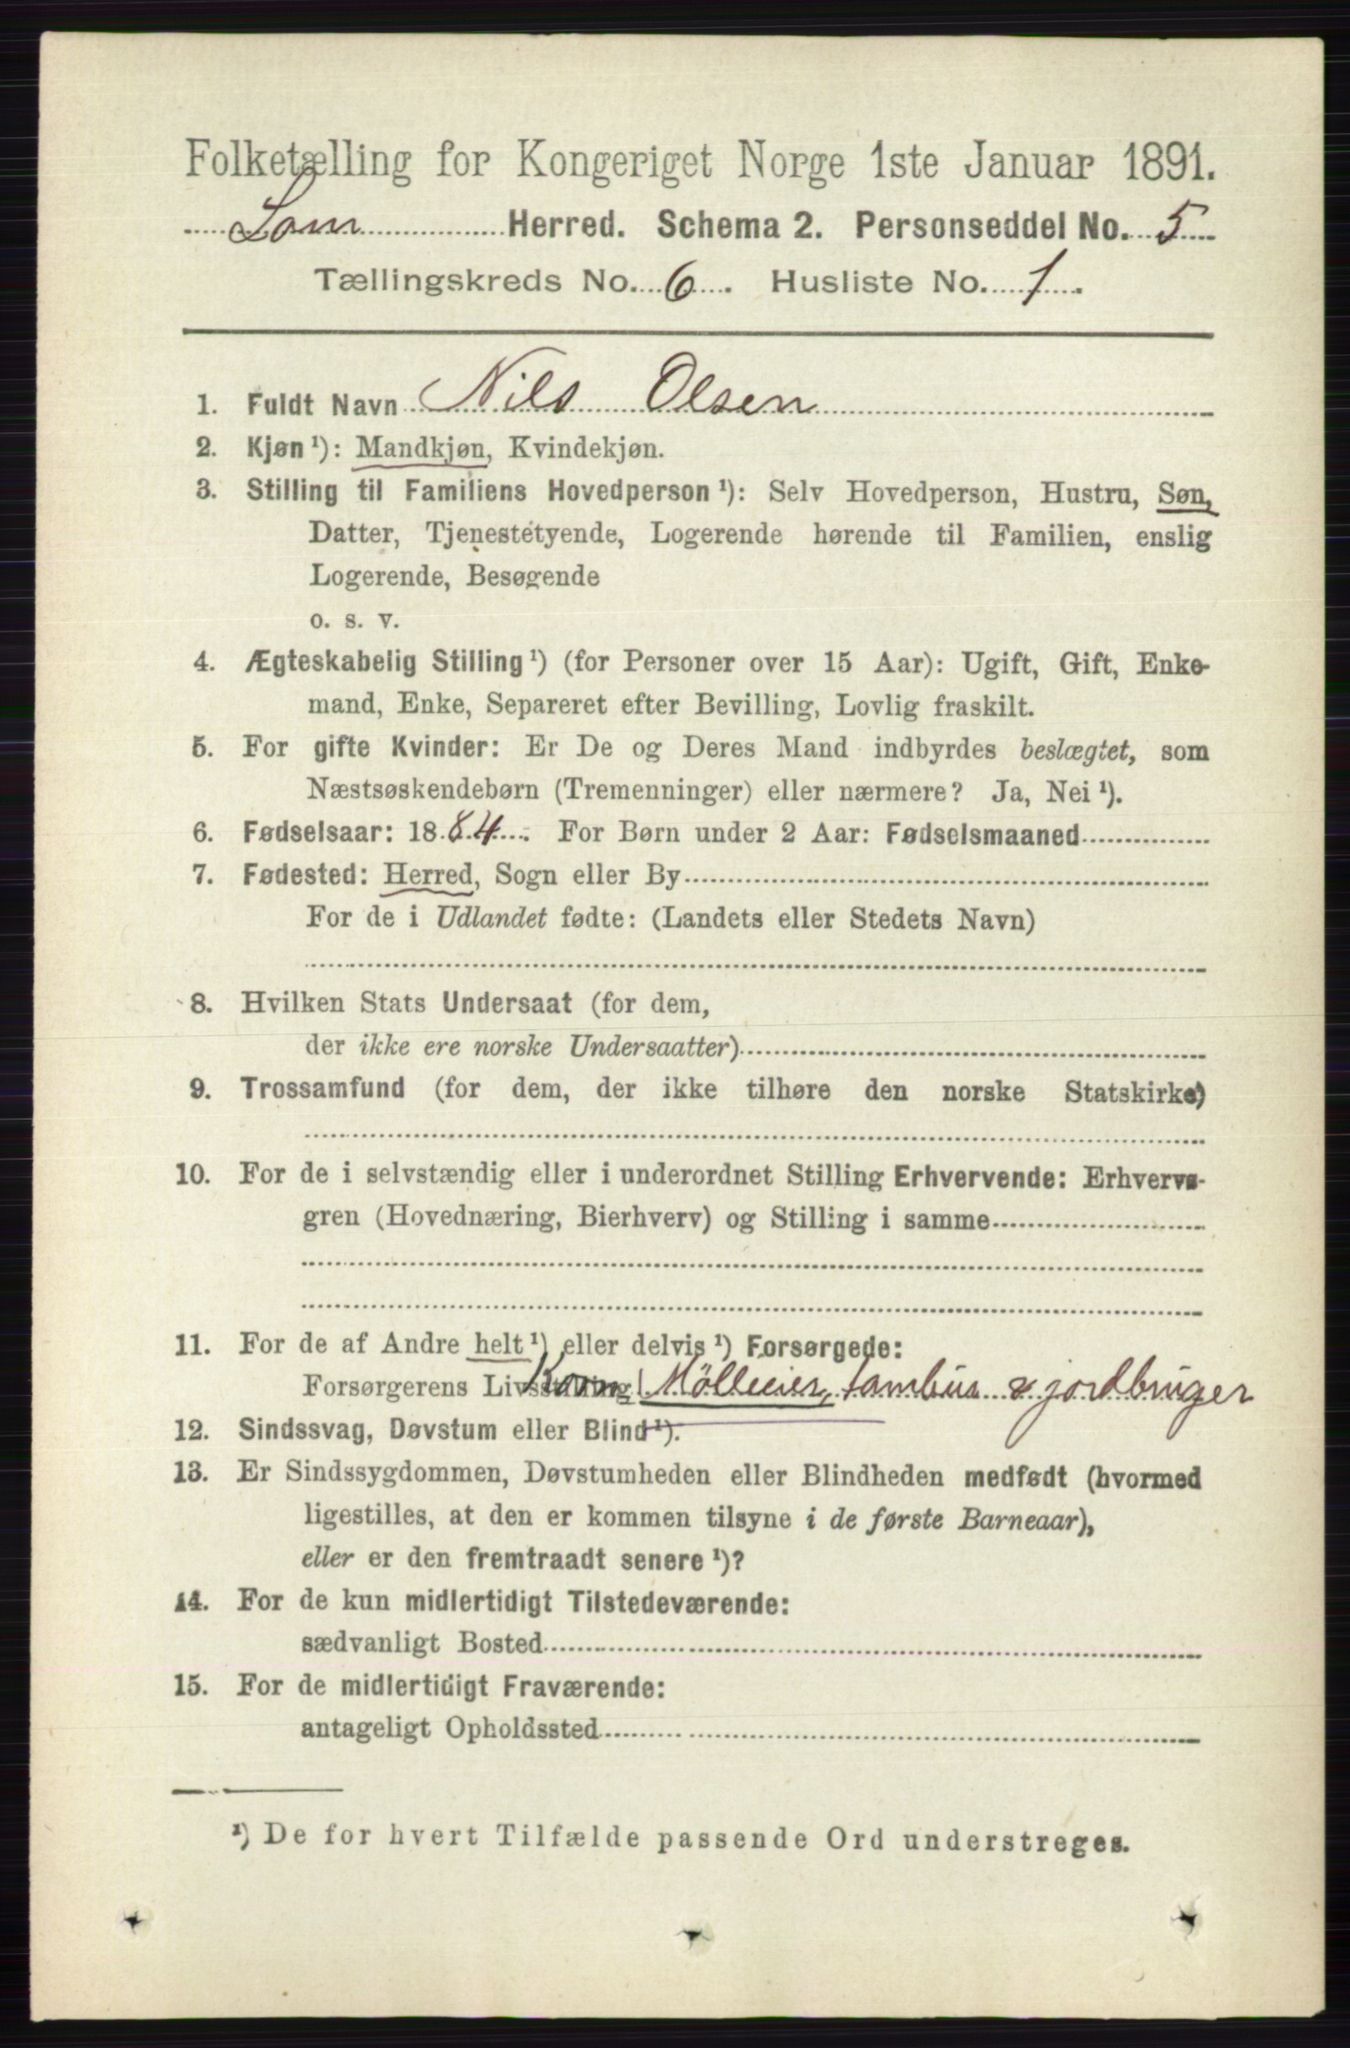 Folketælling for Kongeriget Norge 1ste Januar 1891.
Lom Herred. Schema 2. Personseddel No. 5
Tællingskreds No. 6. Husliste No. 1.
1. Fuldt Navn Nils Olsen
2. Kjøn ¹): Mandkjøn, Kvindekjøn.
3. Stilling til Familiens Hovedperson ¹): Selv Hovedperson, Hustru, Søn,
Datter, Tjenestetyende, Logerende hørende til Familien, enslig
Logerende, Besøgende
o. s. v.
4. Ægteskabelig Stilling ¹) (for Personer over 15 Aar): Ugift, Gift, Enke-
mand, Enke, Separeret efter Bevilling, Lovlig fraskilt.
5. For gifte Kvinder: Er De og Deres Mand indbyrdes beslægtet, som
Næstsøskendebørn (Tremenninger) eller nærmere? Ja, Nei ¹).
6. Fødselsaar: 1884. For Børn under 2 Aar: Fødselsmaaned
7. Fødested: Herred, Sogn eller By
For de i Udlandet fødte: (Landets eller Stedets Navn)
8. Hvilken Stats Undersaat (for dem,
der ikke ere norske Undersaatter)
9. Trossamfund (for dem, der ikke tilhøre den norske Statskirke)
10. For de i selvstændig eller i underordnet Stilling Erhvervende: Erhvervs-
gren (Hovednæring, Bierhverv) og Stilling i samme
11. For de af Andre helt ¹) eller delvis ¹) Forsørgede:
Forsørgerens Livsstilling Korn Mölleeier, jordbruger
12. Sindssvag, Døvstum eller Blind ¹).
13. Er Sindssygdommen, Døvstumheden eller Blindheden medfødt (hvormed
ligestilles, at den er kommen tilsyne i de første Barneaar),
eller er den fremtraadt senere ¹)?
14. For de kun midlertidigt Tilstedeværende:
sædvanligt Bosted
15. For de midlertidigt Fraværende:
antageligt Opholdssted
¹) De for hvert Tilfælde passende Ord understreges.